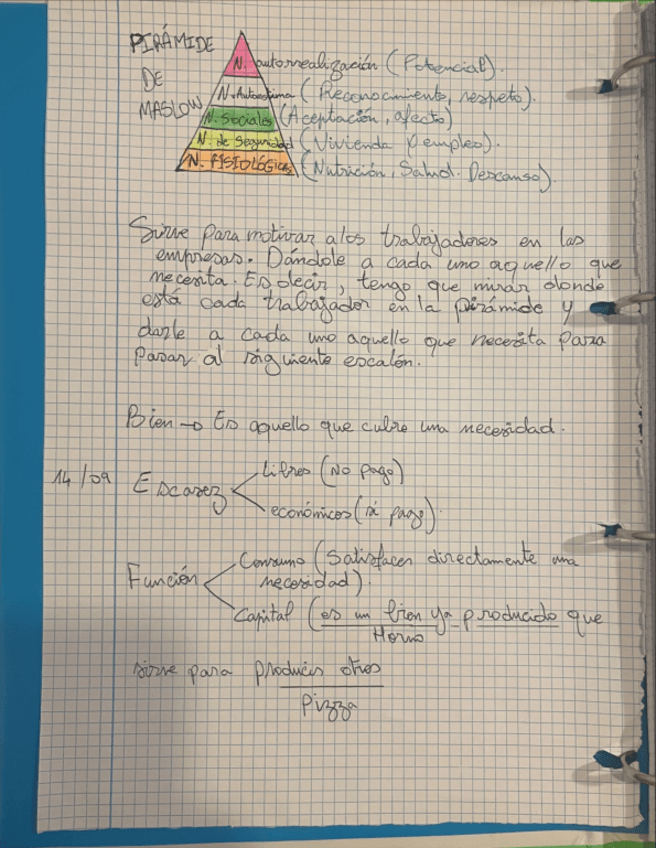 PIRÁMIDE
DE
MASLOW
N. autorrealización (Potencial).
N. Autoestima (Reconocimiento, respeto).
N. Sociales (Aceptación, afecto)
N. de Seguridad (Vivienda y empleo).
N. FISIOLÓGICAS (Nutrición, Salud. Descanso).
Sirve para motivar a los trabajadores en las
empresas. Dándole a cada uno aquello que
necesita. Es decir, tengo que mirar donde
está cada trabajador en la pirámide y
darle a cada uno aquello que necesita para
pasar al siguiente escalón.
Bien → Es aquello que cubre una necesidad.
14/09
Escasez
Libres (No pago)
económicos (sí pago)
Función
Consumo (Satisfacen directamente una
necesidad).
Capital (es un bien ya producido que
Horno
sirve para producir otros
Pizza